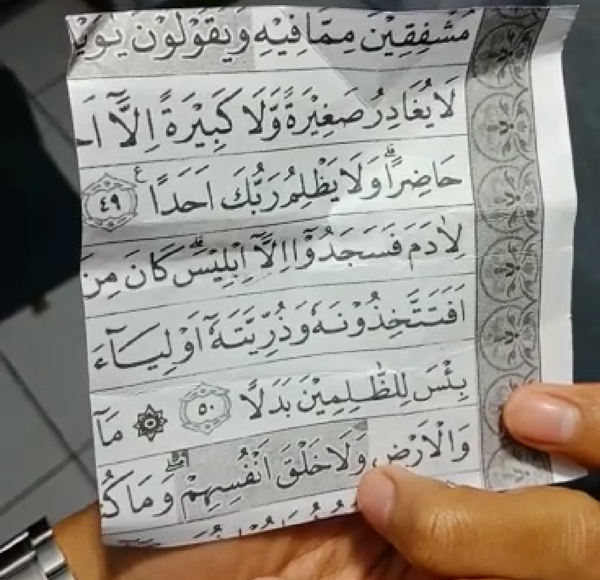 مُشْفِقِيْنَ مِمَّا فِيْهِ وَيَقُوْلُوْنَ
لَا يُغَادِرُ صَغِيْرَةً وَّلَا كَبِيْرَةً اِلَّآ
حَاضِرًاۗ وَلَا يَظْلِمُ رَبُّكَ اَحَدًا ࣖ ٤٩
لِاٰدَمَ فَسَجَدُوْٓا اِلَّآ اِبْلِيْسَۗ كَانَ مِنَ
اَفَتَتَّخِذُوْنَهٗ وَذُرِّيَّتَهٗٓ اَوْلِيَاۤءَ
بِئْسَ لِلظّٰلِمِيْنَ بَدَلًا ٥٠ ۞ مَآ
وَالْاَرْضِ وَلَا خَلْقَ اَنْفُسِهِمْۖ وَمَا